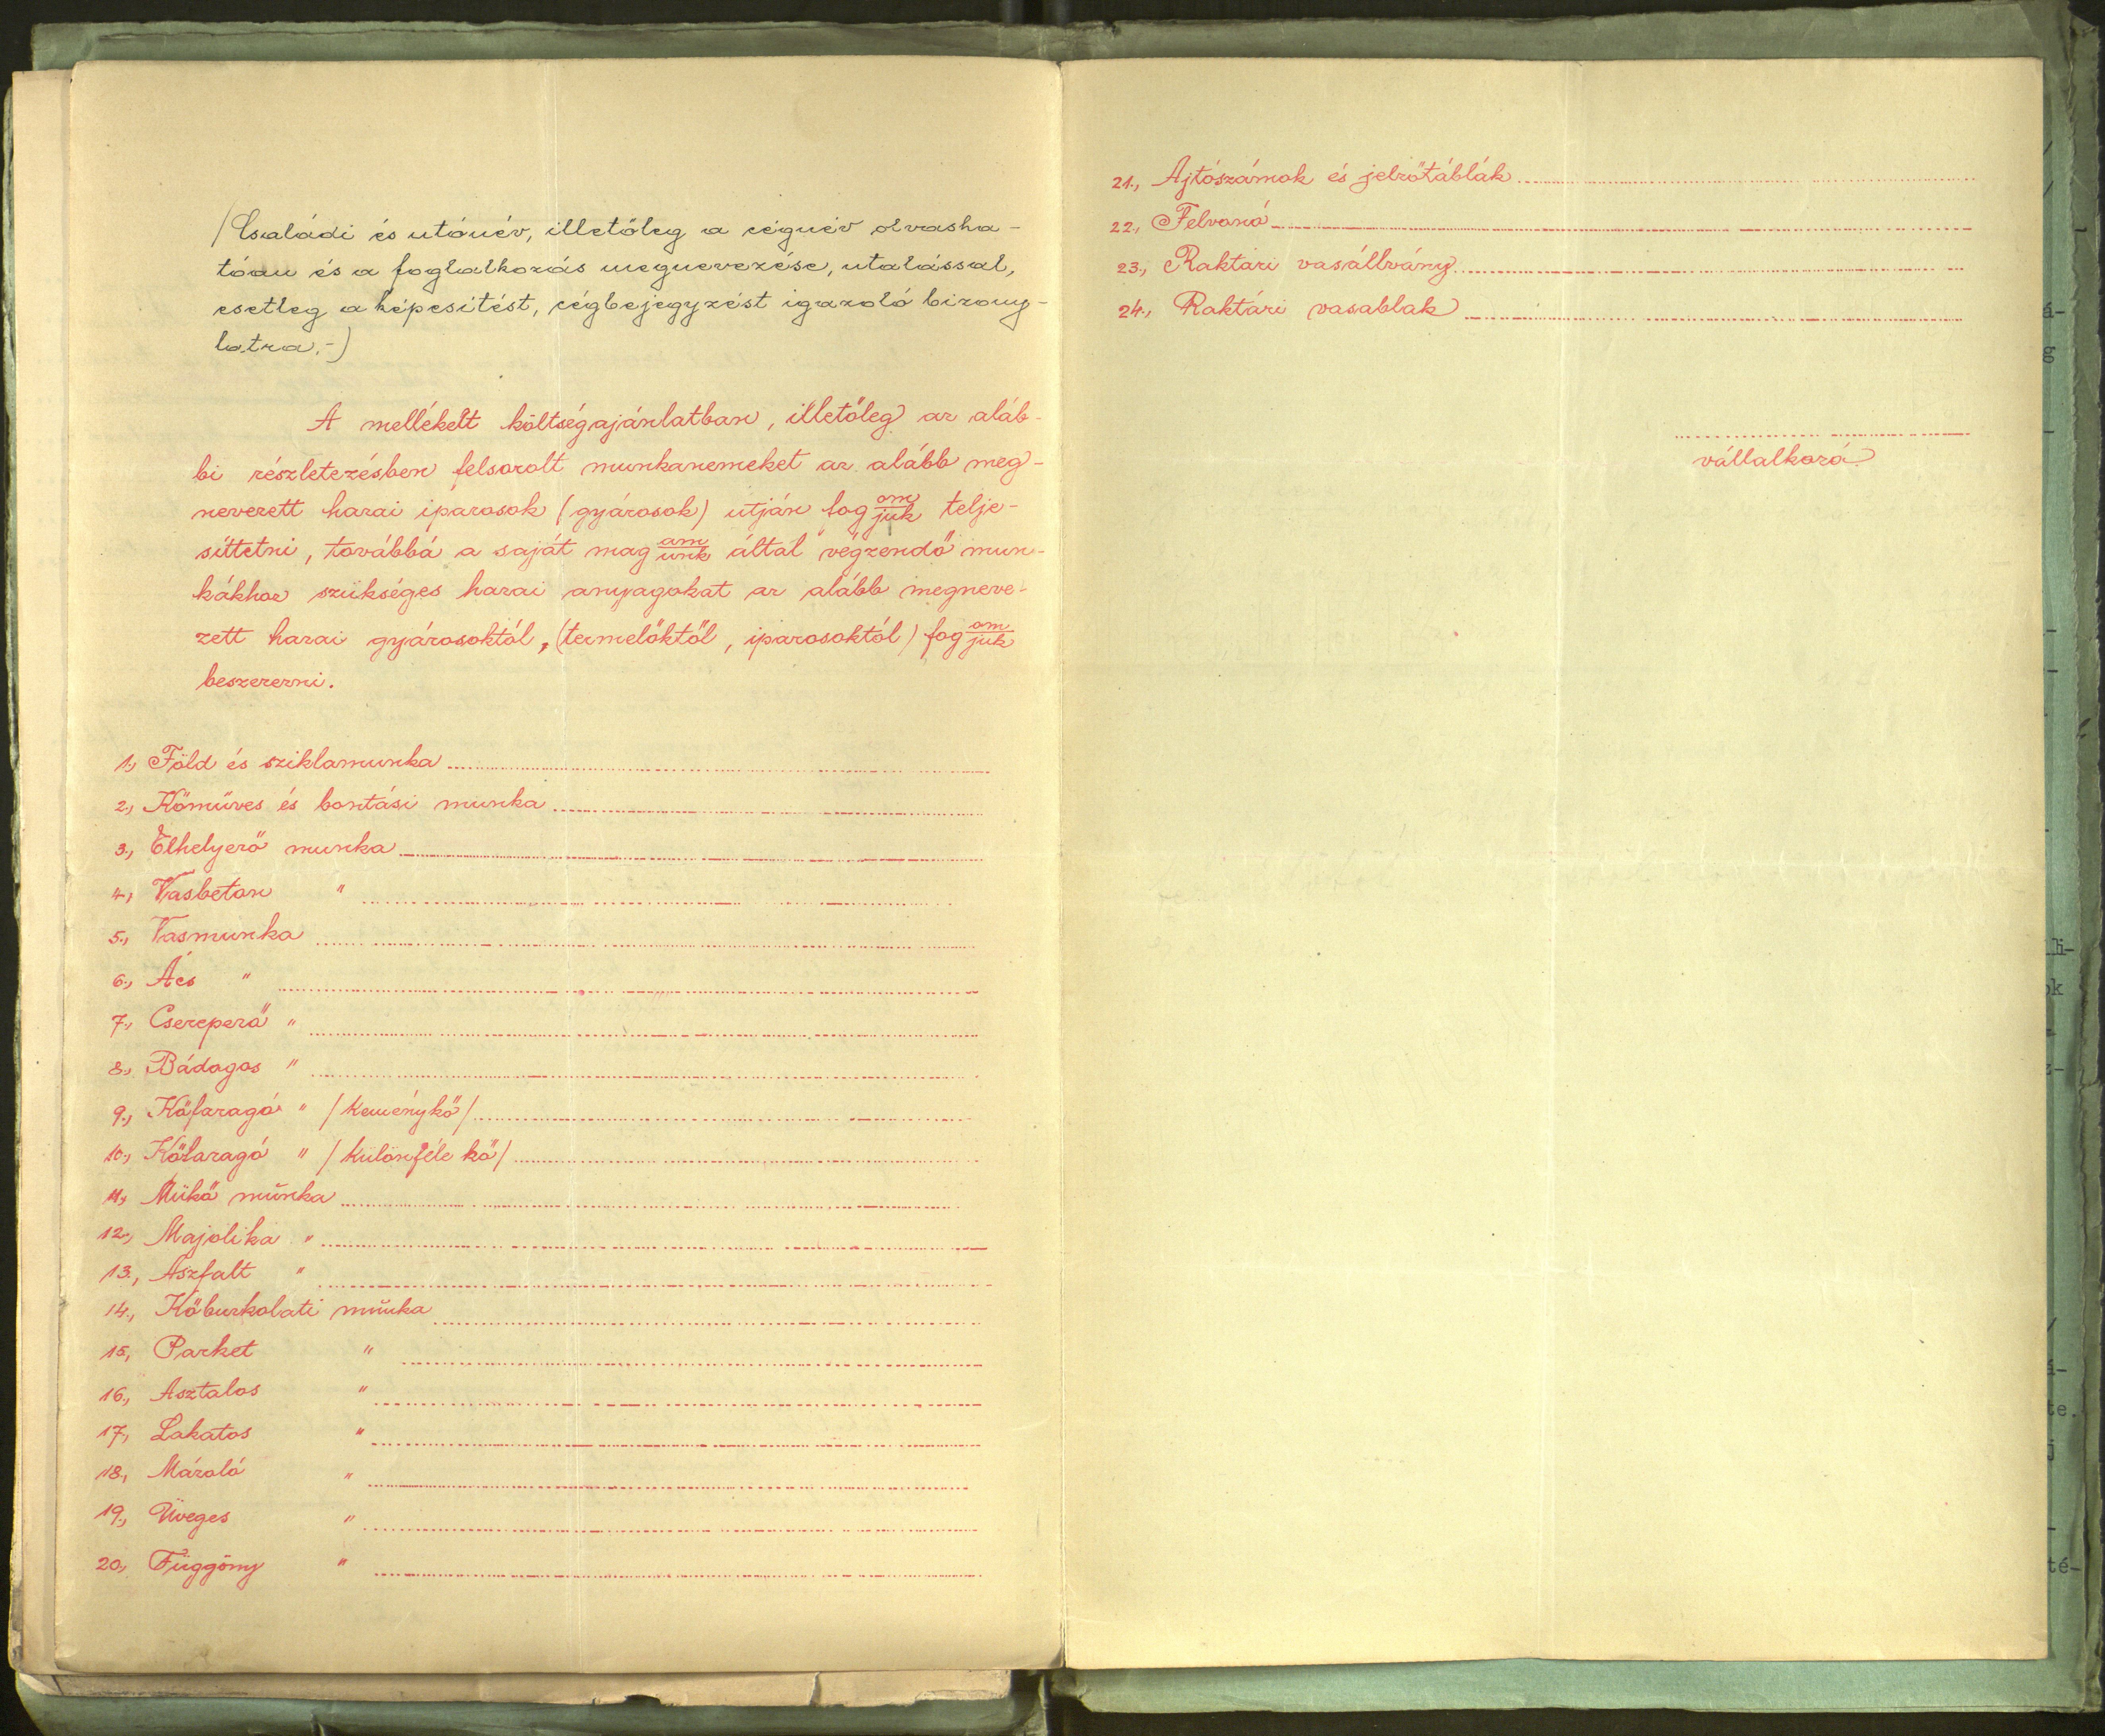 /Családi és utónév, illetőleg a cégnév olvasha-
tóan és a foglalkozás megnevezése, utalással,
esetleg a képesítést, cégbejegyzést igazoló bizony-
latra.-)
A mellékelt költségajánlatban, illetőleg az aláb-
bi részletezésben felsorolt munkanemeket az alább meg-
nevezett hazai iparosok (gyárosok) utján fog om/juk telje-
síttetni, továbbá a saját mag am/unk által végzendő mun-
kákhoz szükséges hazai anyagokat az alább megneve-
zett hazai gyárosoktól, (termelőktől, iparosoktól) fog om/juk
beszerezni.
1., Föld és sziklamunka
2., Kőmüves és bontási munka
3., Elhelyező munka
4., Vasbeton "
5., Vasmunka
6., Ács "
7., Cserepező "
8., Bádogos "
9., Kőfaragó " /keménykő/
10., Kőfaragó " /különféle kő/
11., Mükő munka
12., Majolika "
13., Aszfalt "
14., Kőburkolati munka
15., Parket "
16., Asztalos "
17., Lakatos "
18., Mázoló "
19., Üveges "
20., Függöny "
21., Ajtószámok és jelzőtáblák
22., Felvonó
23., Raktári vasállvány
24., Raktári vasablak
vállalkozó.